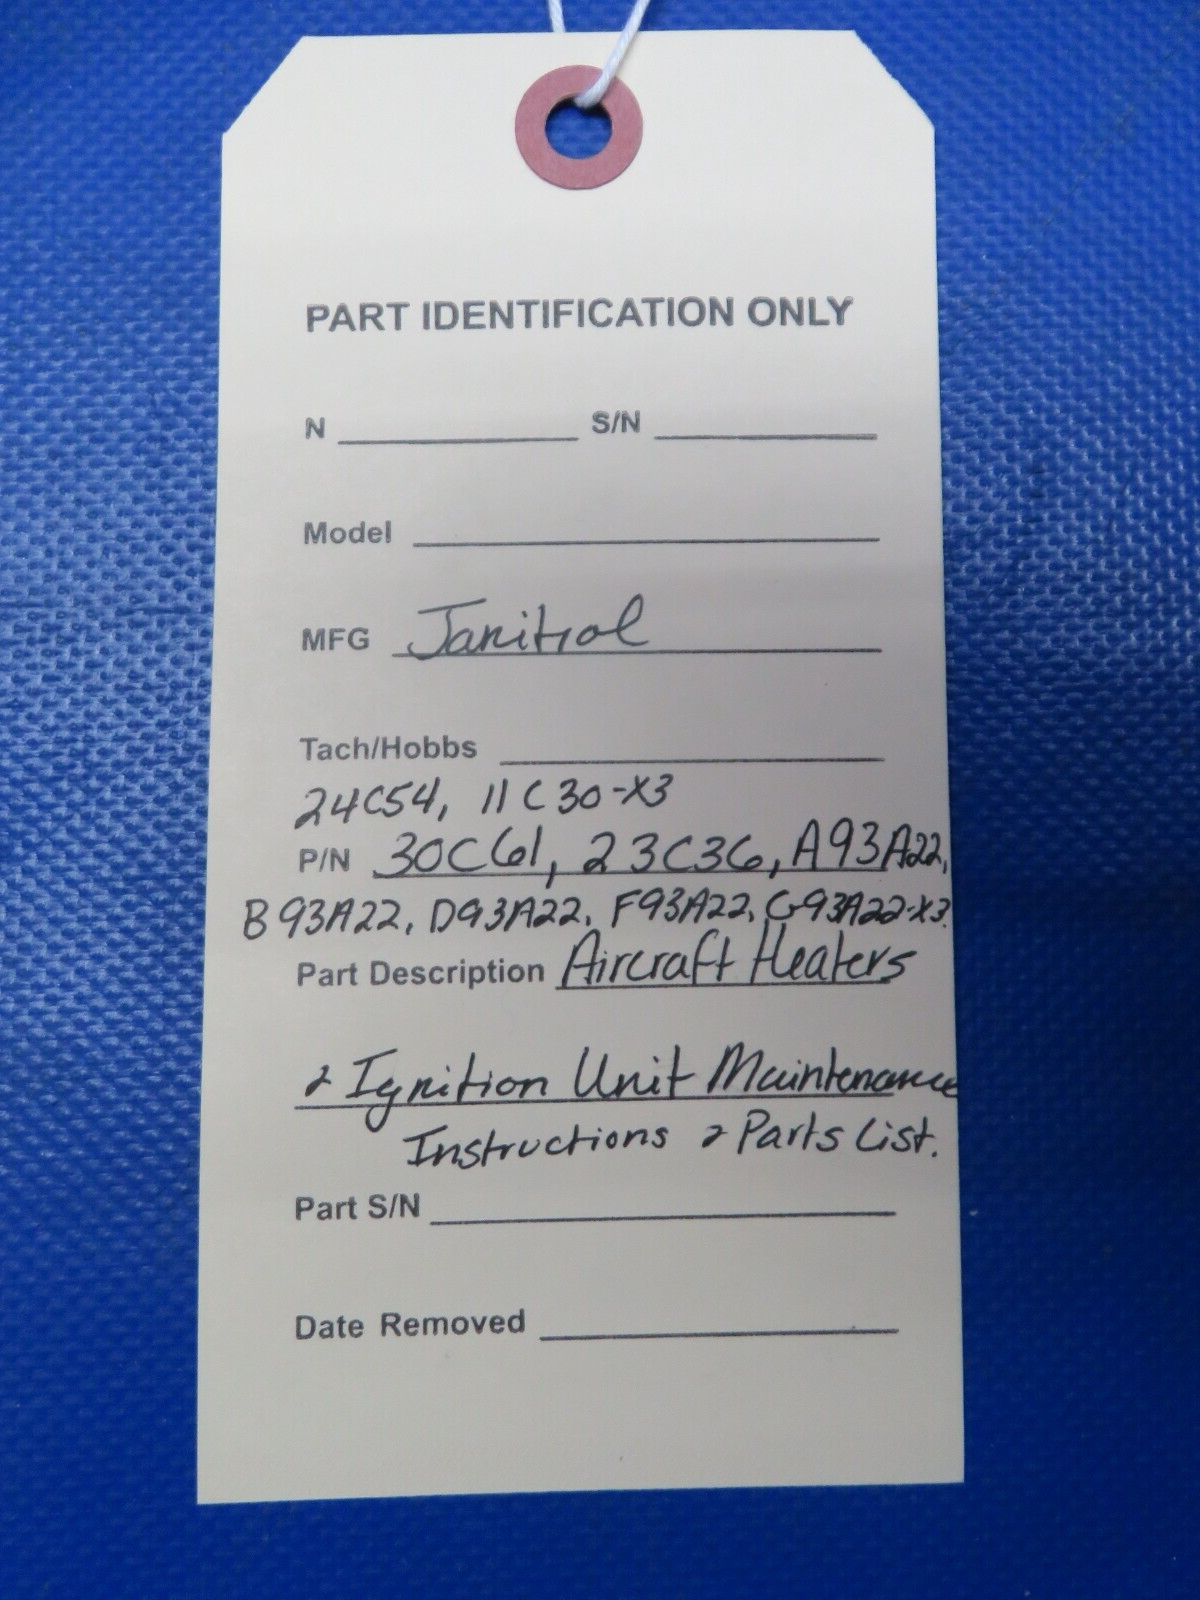 PART IDENTIFICATION ONLY
N S/N
Model
MFG Janitrol
Tach/Hobbs
24C54, 11C30-X3
P/N 30C61, 23C36, A93A22,
B93A22, D93A22, F93A22, G93A22-X3.
Part Description Aircraft Heaters
& Ignition Unit Maintenance
Instructions & Parts List.
Part S/N
Date Removed